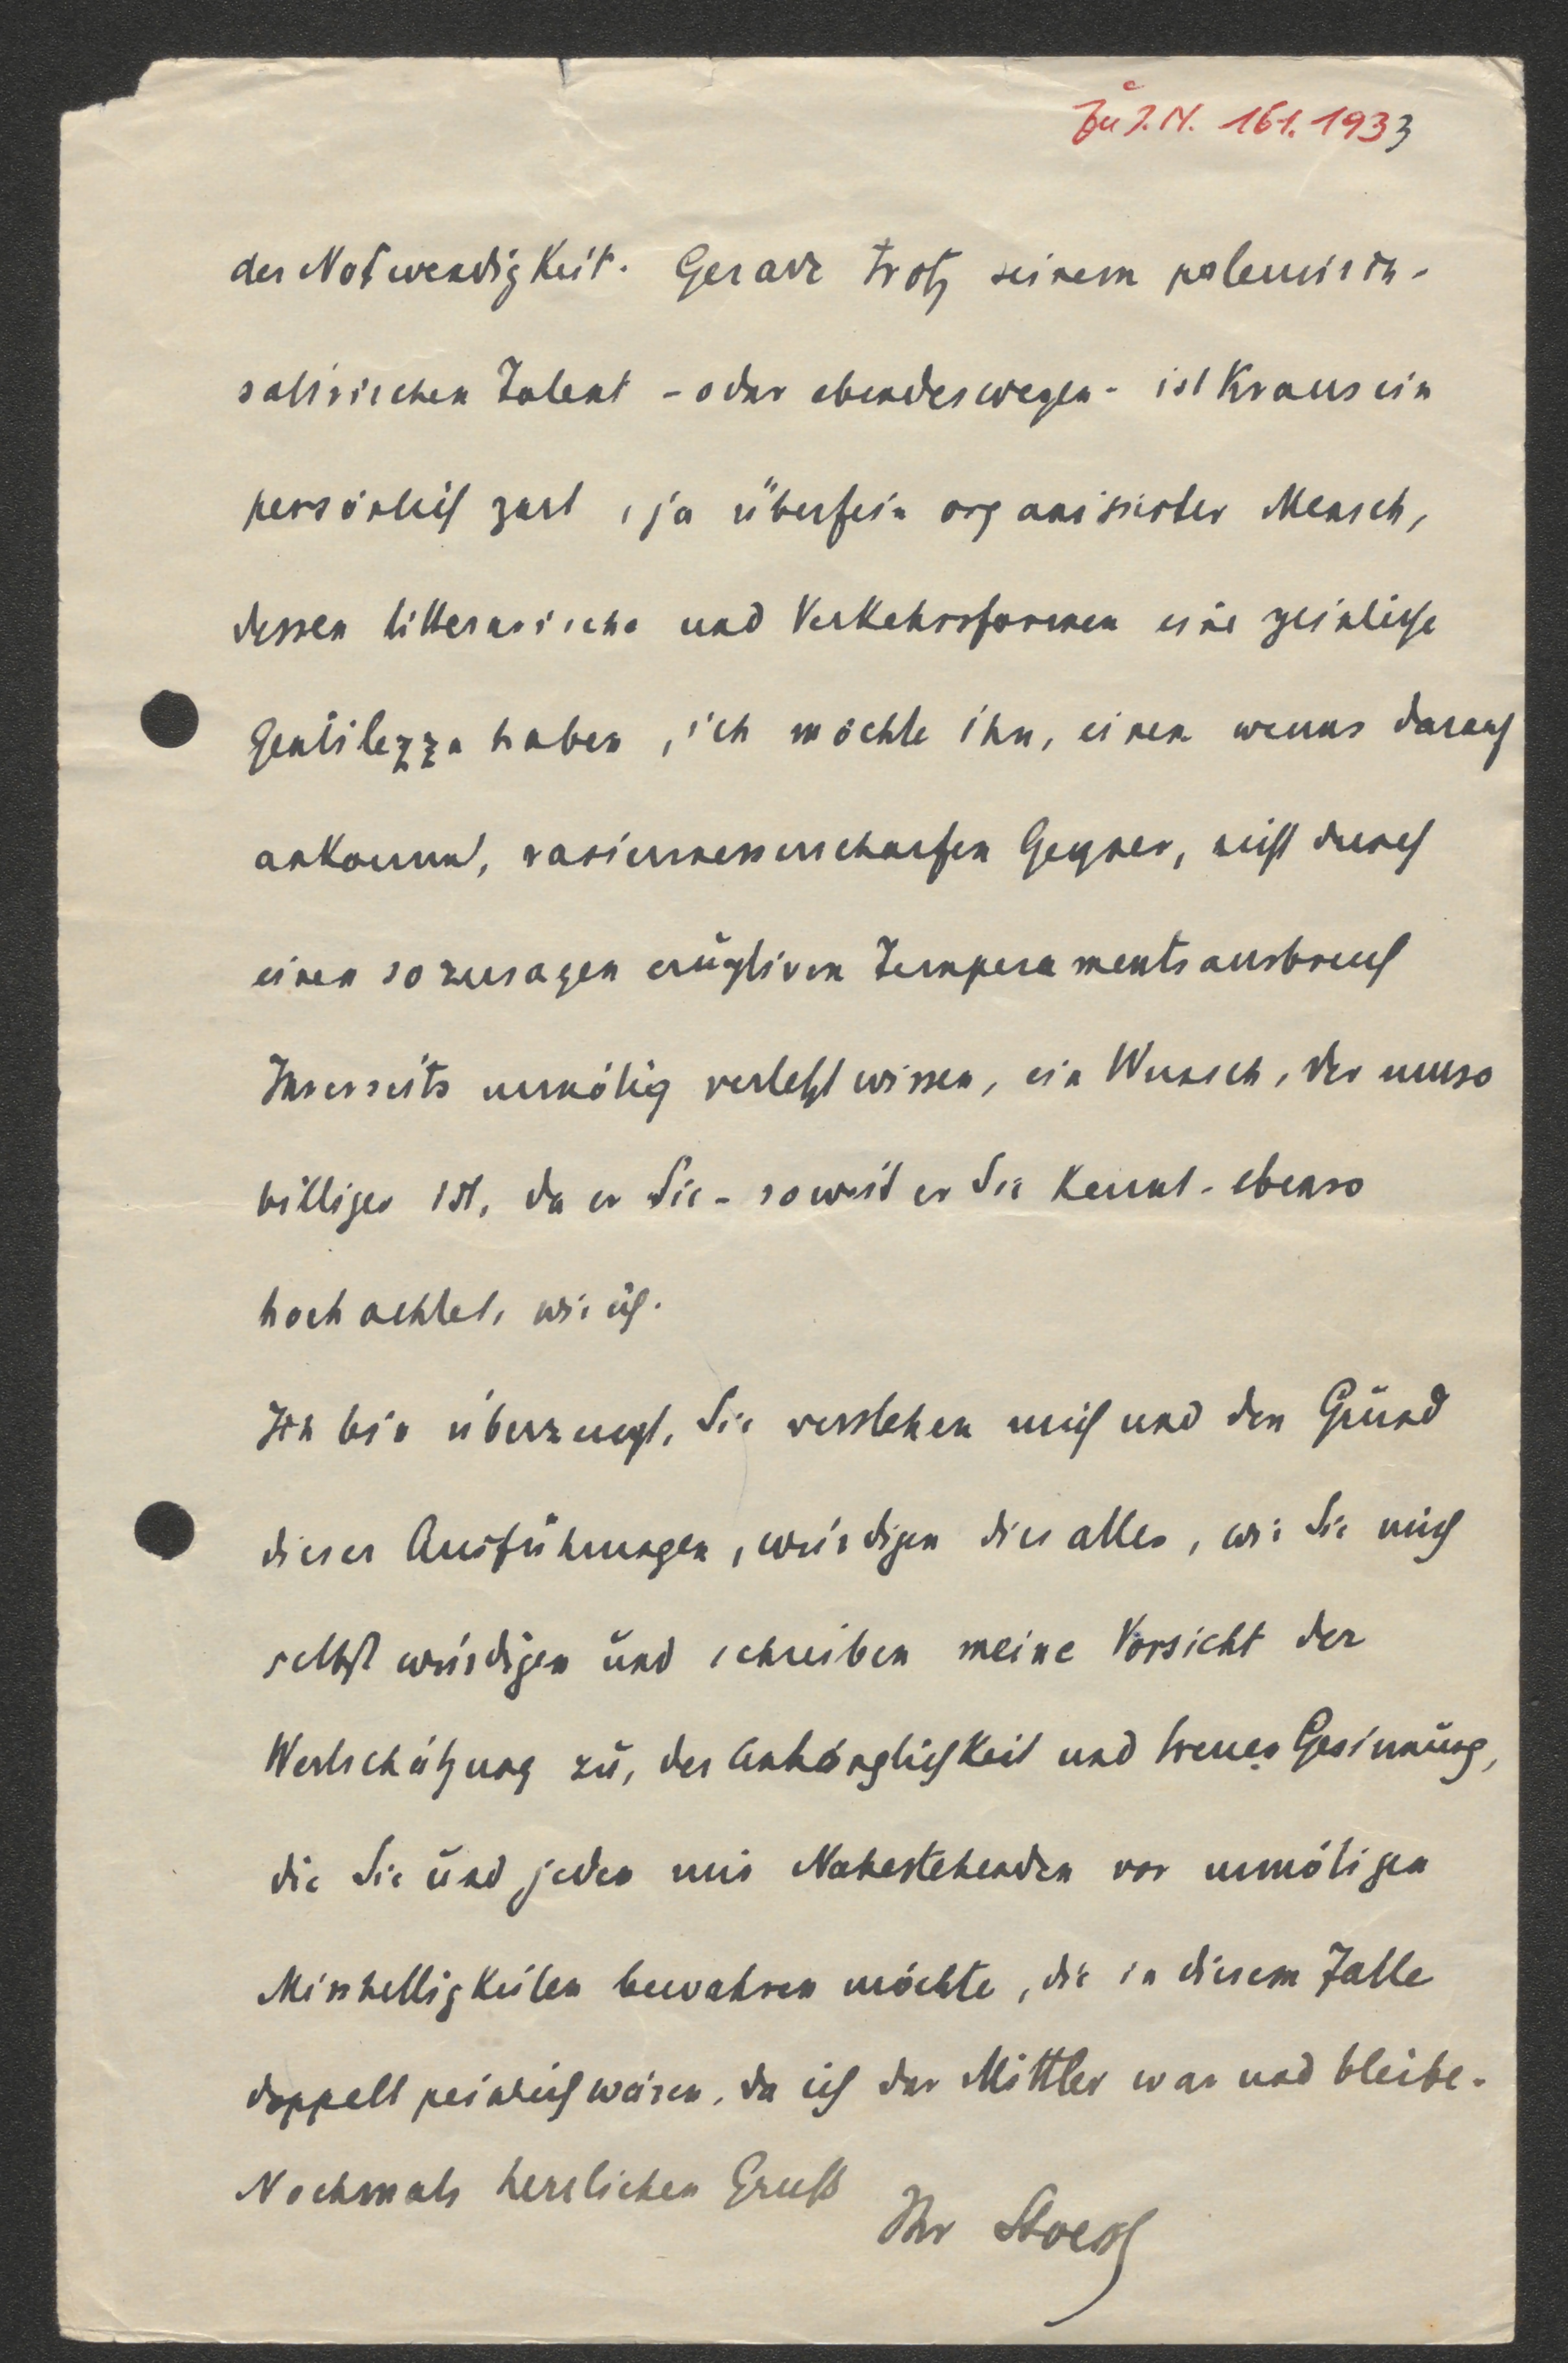 Zu I.N. 161.1933
der Notwendigkeit. Gerade trotz seinem polemisch-
satirischen Talent - oder ebendeswegen - ist Kraus ein
persönlich zart, ja überfein organisierter Mensch,
dessen litterarische und Verkehrsformen eine peinliche
Gentilezza haben, ich möchte ihn, einen wenns darauf
ankommt, rasiermesserscharfen Gegner, nicht durch
einen sozusagen eruptiven Temperamentsausbruch
Ihrerseits unnötig verletzt wissen, ein Wunsch, der umso
billiger ist, da er Sie - soweit er Sie kennt - ebenso
hoch achtet, wie ich.
Ich bin überzeugt, Sie verstehen mich und den Grund
dieser Ausführungen, würdigen dies alles, wie Sie mich
selbst würdigen und schreiben meine Vorsicht der
Wertschätzung zu, der Anhänglichkeit und treuer Gesinnung,
die Sie und jeden mir Nahestehenden vor unnötigen
Misshelligkeiten bewahren möchte, die in diesem Falle
doppelt peinlich wären, da ich der Mittler war und bleibe.
Nochmals herzlichen Gruß
Ihr Stoessl